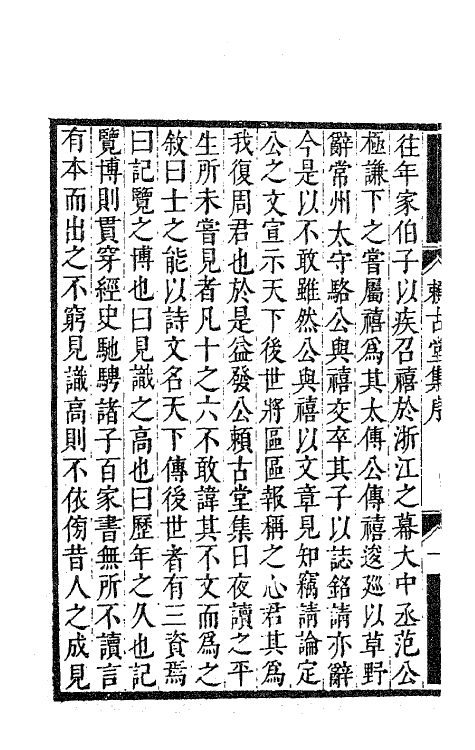 賴古堂集序
一
往年家伯子以疾召禧於浙江之幕大中丞范公
極謙下之嘗屬禧爲其太傅公傳禧逡廵以草野
辭常州太守駱公與禧交卒其子以誌銘請亦辭
今是以不敢雖然公與禧以文章見知竊請論定
公之文宣示天下後世將區區報稱之心君其爲
我復周君也於是益發公賴古堂集日夜讀之平
生所未嘗見者凡十之六不敢諱其不文而爲之
敘曰士之能以詩文名天下傳後世者有三資焉
曰記覽之博也曰見識之高也曰歷年之久也記
覽博則貫穿經史馳騁諸子百家書無所不讀言
有本而出之不窮見識高則不依傍昔人之成見